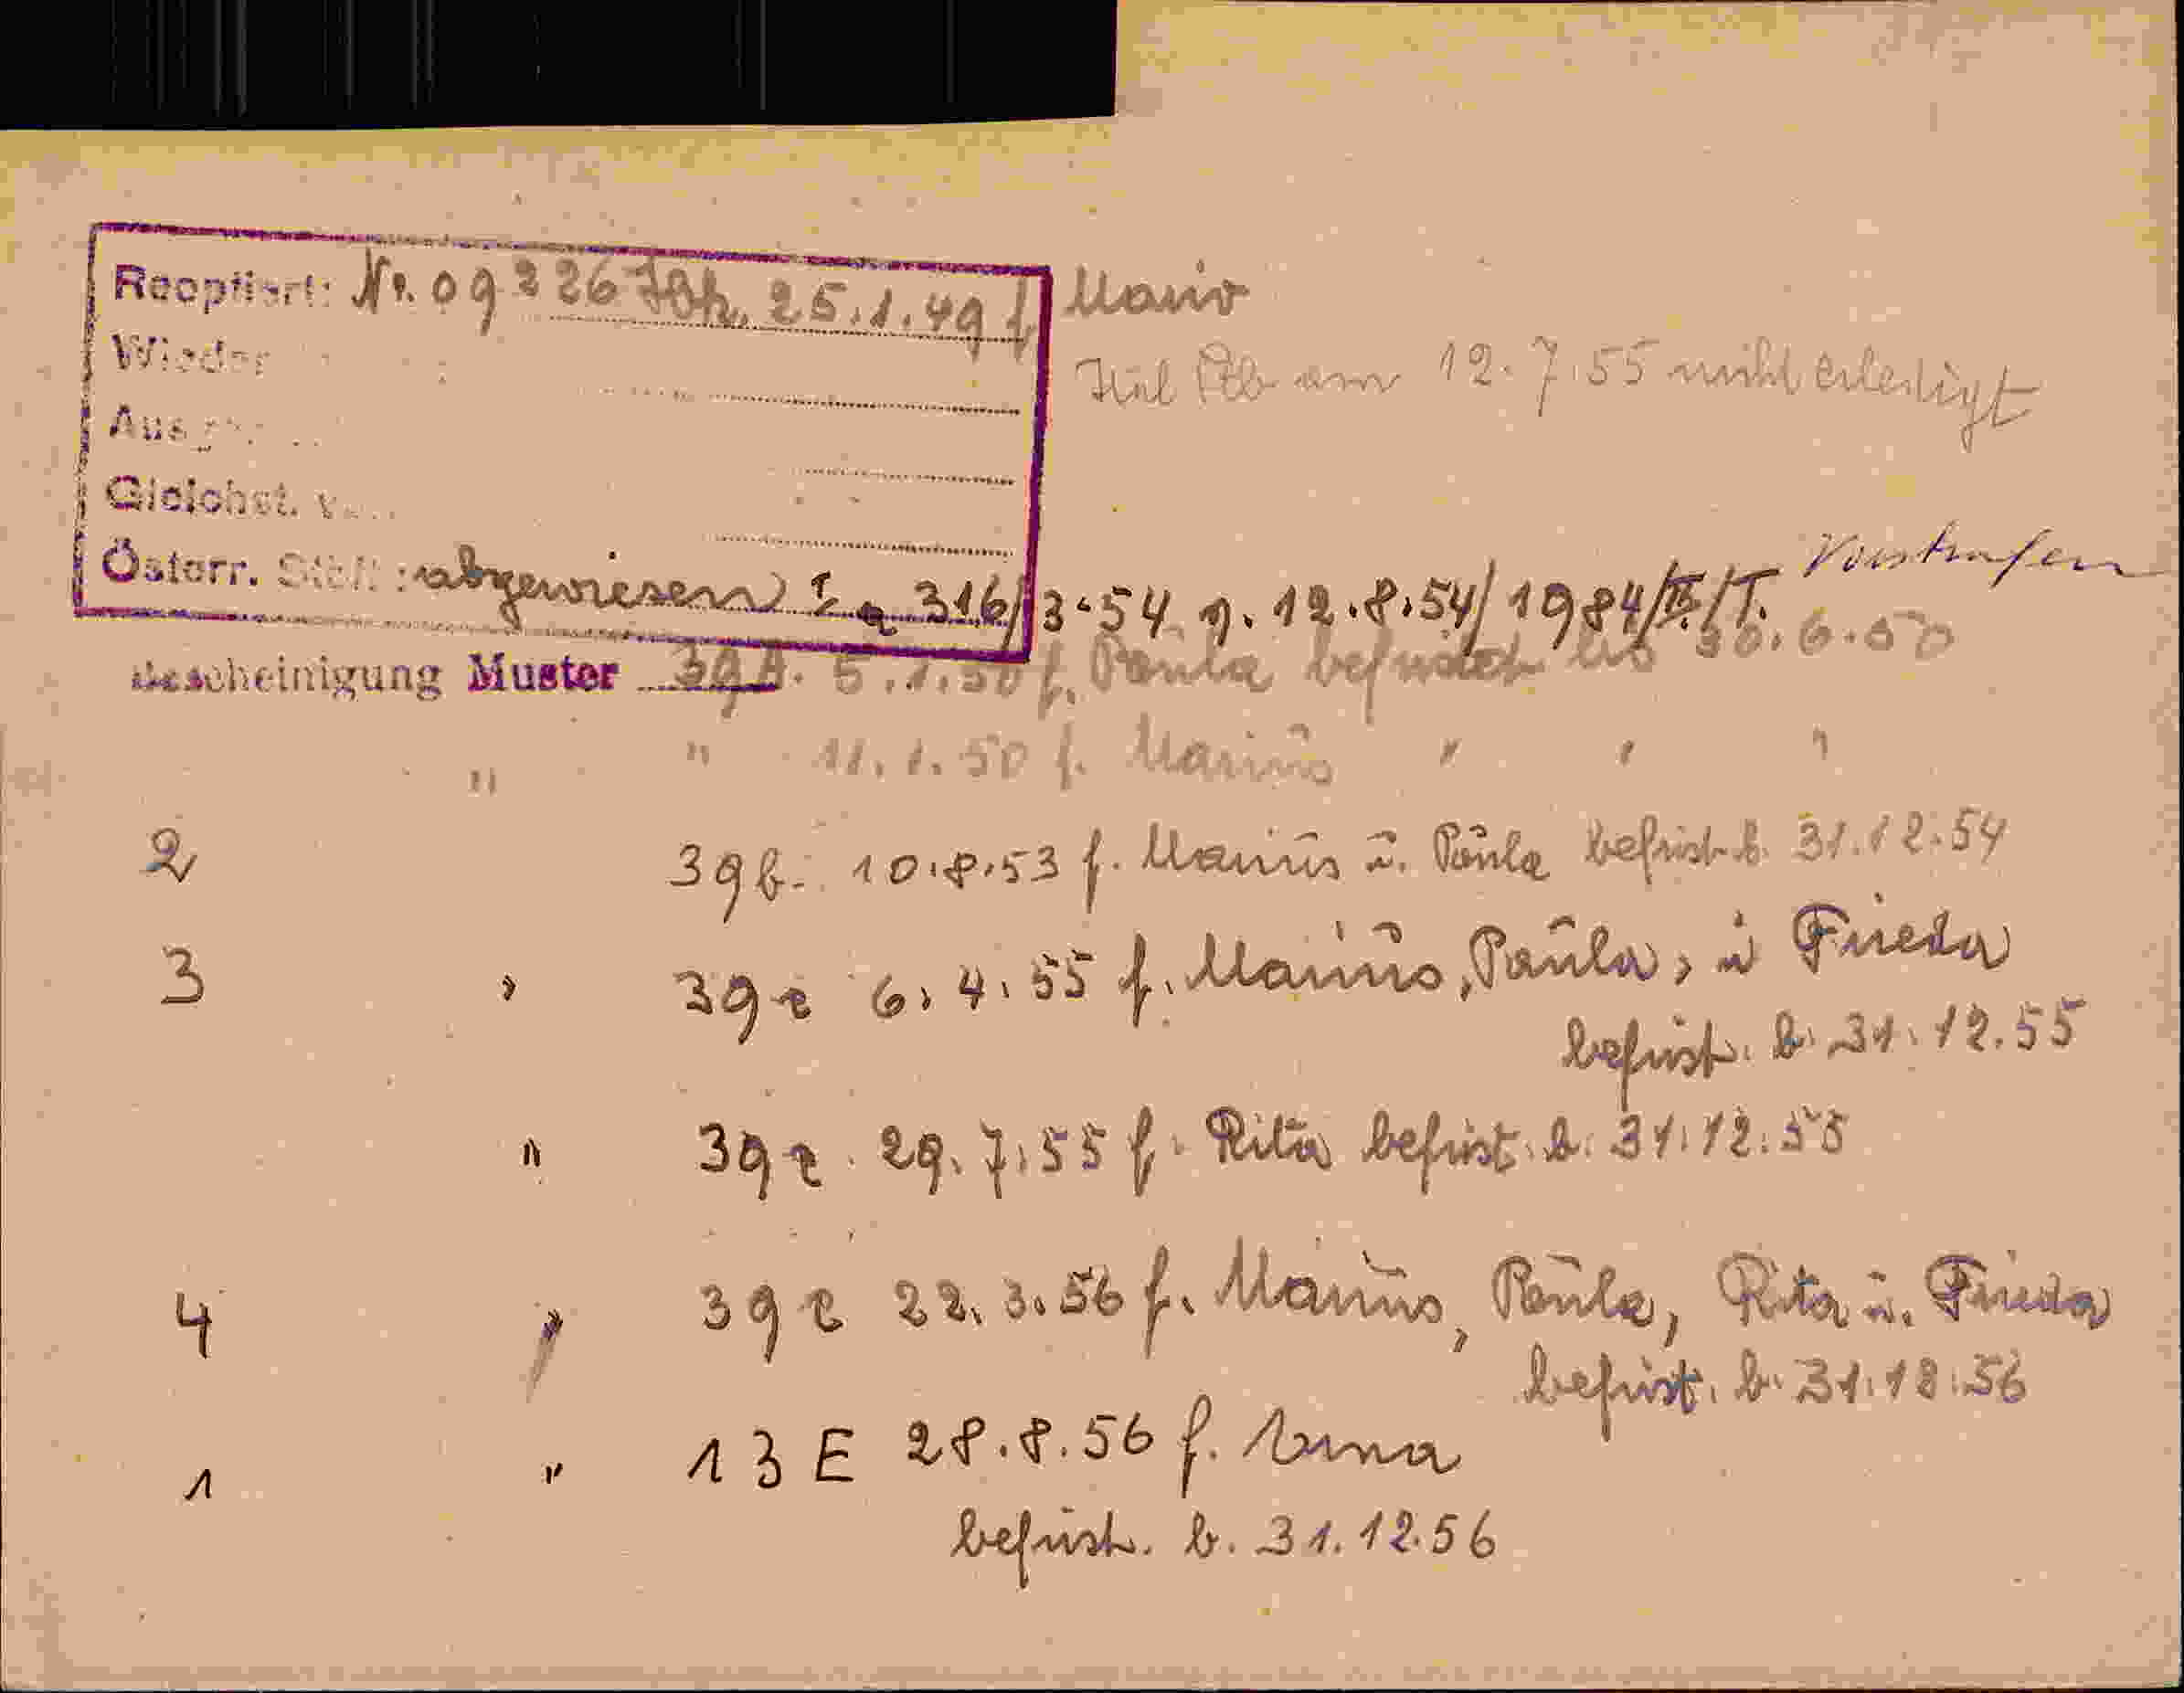 Reoptiert: Nr. 09226 Jbk. 25.1.49 f. Mario
Wieder
12.7.55 nicht erledigt
Gleichst.
Österr. Stél: abgewiesen I a 316/3-54 v. 12.8.54/1984/II./T. Vorstrafen
Bescheinigung Muster 39A. 5.1.50 f. Paula befristet bis 30.6.50
" " 11.1.50 f. Marius " " "
2 39b. 10.8.53 f. Marius u. Paula befrist. b. 31.12.54
3 " 39c 6.4.55 f. Marius, Paula, u Frieda
befrist. b. 31.12.55
" 39c. 29.7.55 f. Rita befrist. b. 31.12.55
4 " 39c 22.3.56 f. Marius, Paula, Rita u. Frieda
befrist. b. 31.12.56
1 " 13 E 28.8.56 f. Anna
befrist. b. 31.12.56